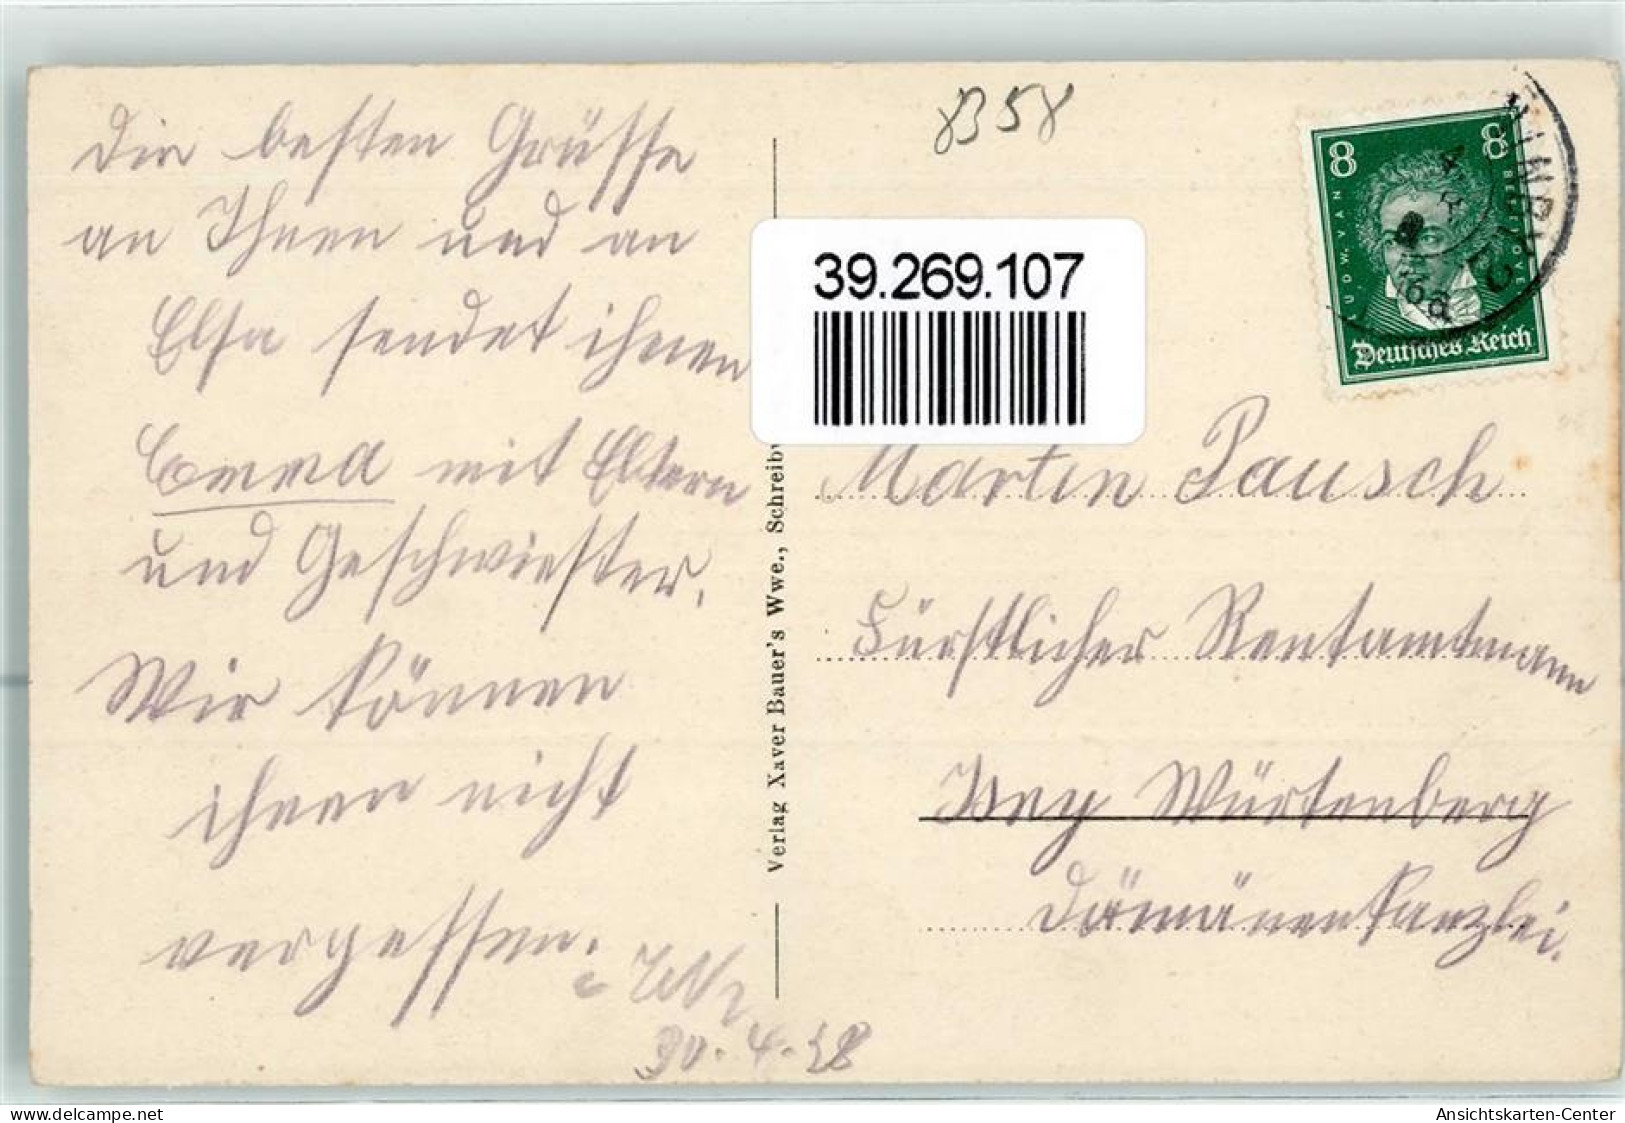 Die besten Grüsse
an Ihnen und an
Elsa sendet ihnen
Emma mit Eltern
und Geschwiester.
Wir können
ihnen nicht
vergessen.
30.4.28
8358
39.269.107
8 8
LUDW. VAN BEETHOVEN
Deutsches Reich
Martin Pausch
Fürstlicher Rentamtmann
Isny Würtenberg
Dömänenkanzlei.
Verlag Xaver Bauer's Wwe., Schreibw
oldthing.de
Ansichtskarten-Center